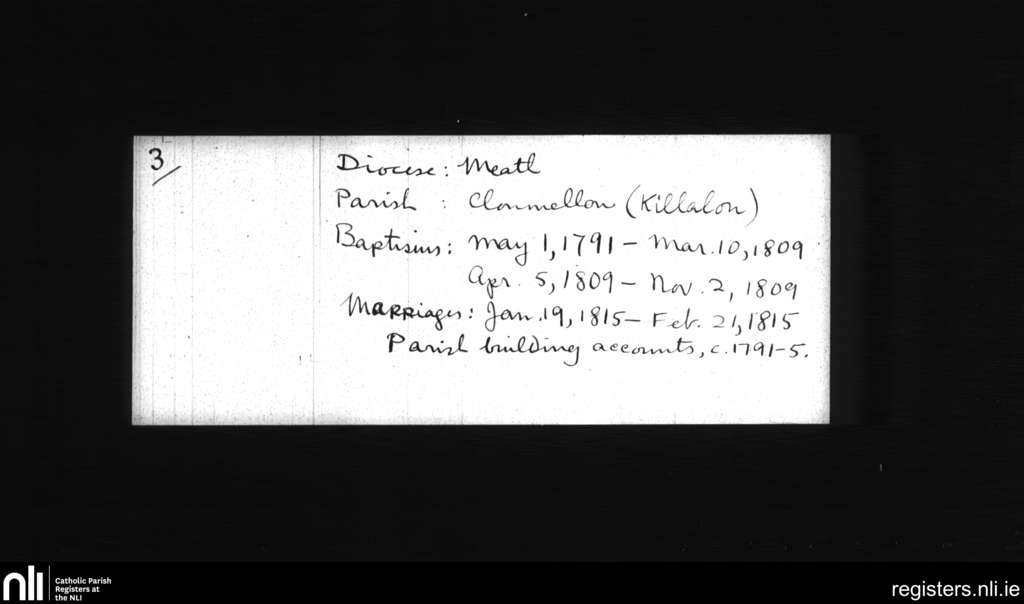 3/
Diocese: Meath
Parish : Clonmellon (Killalon)
Baptisms: May 1, 1791 - Mar. 10, 1809
Apr. 5, 1809 - Nov. 2, 1809
Marriages: Jan. 19, 1815 - Feb. 21, 1815
Parish building accounts, c. 1791-5.
nli
Catholic Parish
Registers at
the NLI
registers.nli.ie